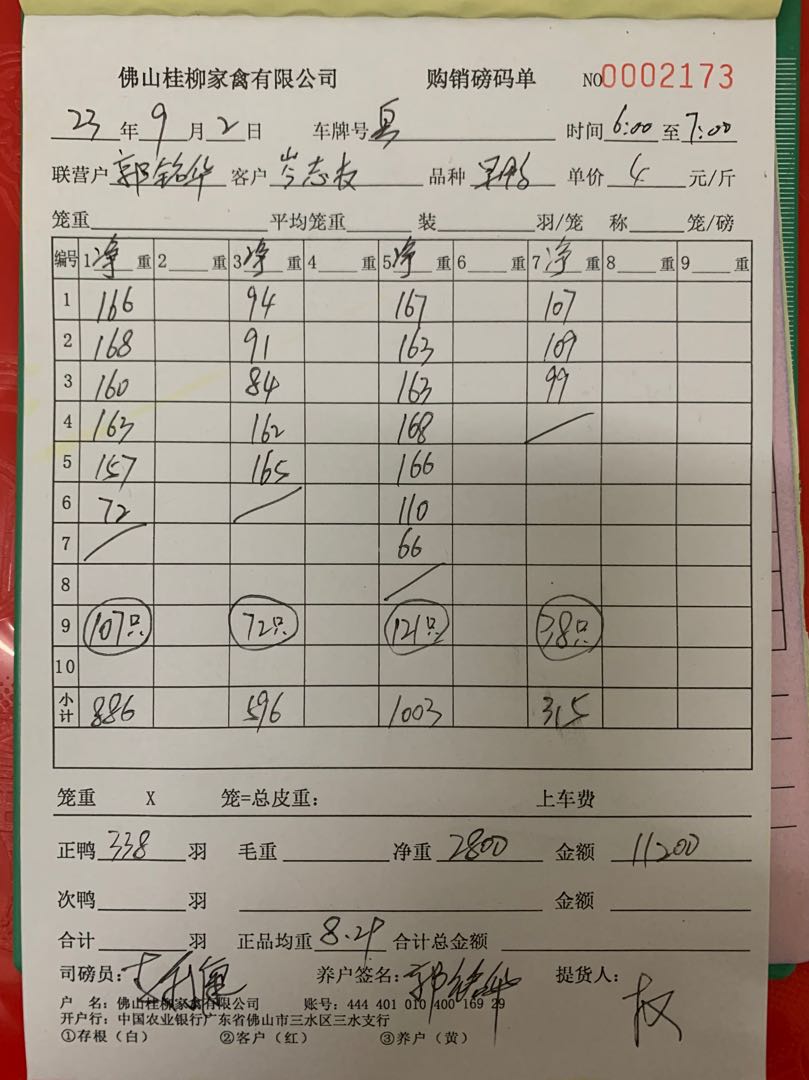 佛山桂柳家禽有限公司 购销磅码单 NO0002173
23年9月2日 车牌号 时间6:00至7:00
联营户郭铭华 客户岑志权 品种 单价4元/斤
笼重 平均笼重 装 羽/笼 称 笼/磅
编号 1净重 2重 3净重 4重 5净重 6重 7净重 8重 9重
1 166 94 167 107
2 168 91 163 109
3 160 84 163 99
4 163 162 168
5 157 165 166
6 72 110
7 66
8
9 107只 72只 121只 38只
10
小计 886 596 1003 315
笼重 X 笼=总皮重: 上车费
正鸭338羽 毛重 净重2800 金额11200
次鸭 羽 金额
合计 羽 正品均重8.29 合计总金额
司磅员: 养户签名:郭铭华 提货人:权
户 名: 佛山桂柳家禽有限公司 账号: 444 401 010 400 169 29
开户行: 中国农业银行广东省佛山市三水区三水支行
①存根(白) ②客户(红) ③养户(黄)